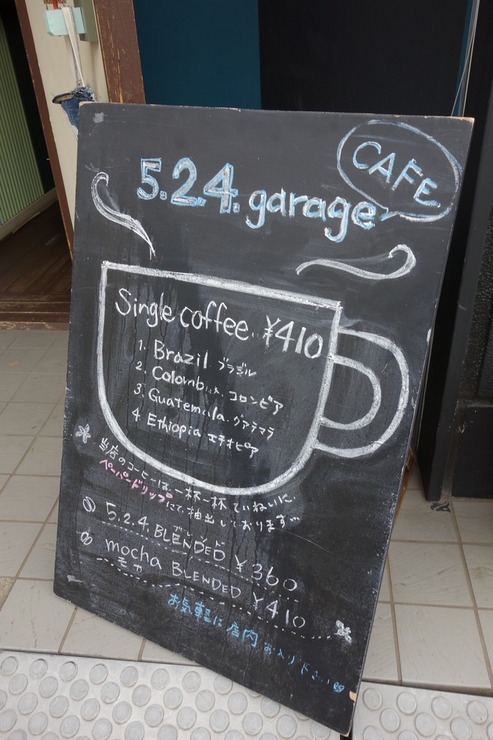 CAFE
5.2.4. garage
Single coffee.. ¥410
1. Brazil ブラジル
2. コロンビア
3. Guatemala. グアテマラ
4. Ethiopia エチオピア
当店のコーヒーは、一杯一杯 ていねいに、
ペーパードリップにて、抽出しております…
ブレンド
5.2.4. BLENDED ¥360
mocha BLENDED ¥410
モカ
お気軽に 店内 お入り下さい